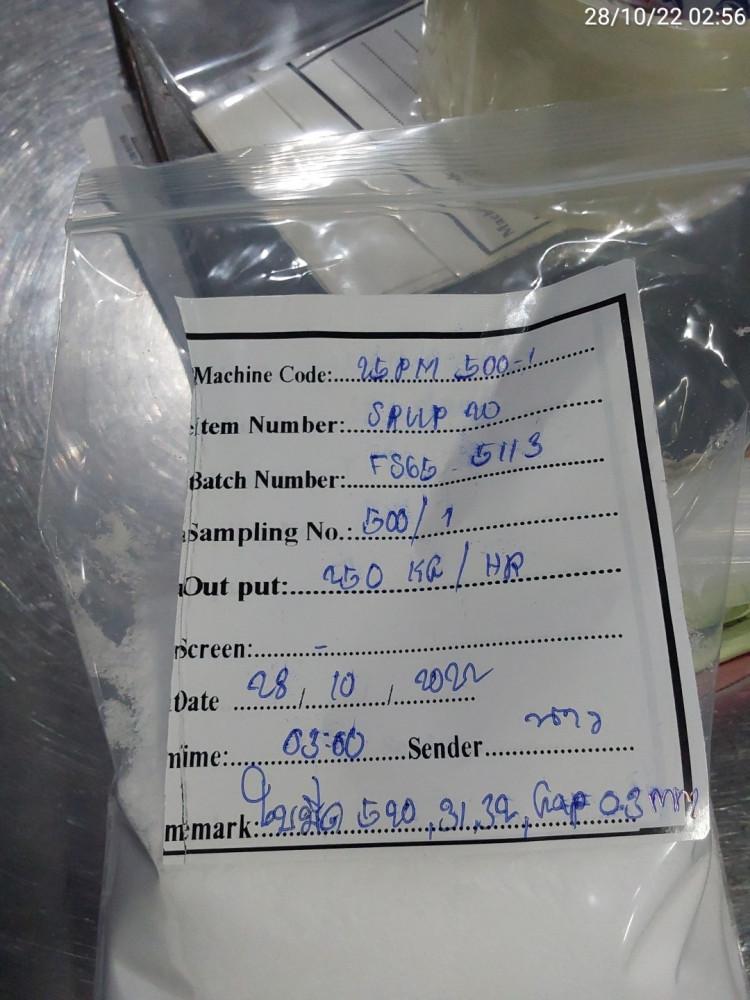 28/10/22 02:56
Machine Code: 25PM 500-1
Item Number: SRUP 20
Batch Number: FS65-5113
Sampling No.: 500/1
Out put: 250 KG/HR
Screen: -
Date 28/10/2022
ime: 03:00 Sender
mark: ใบมีด 520,31,32, Gap 0.3 mm